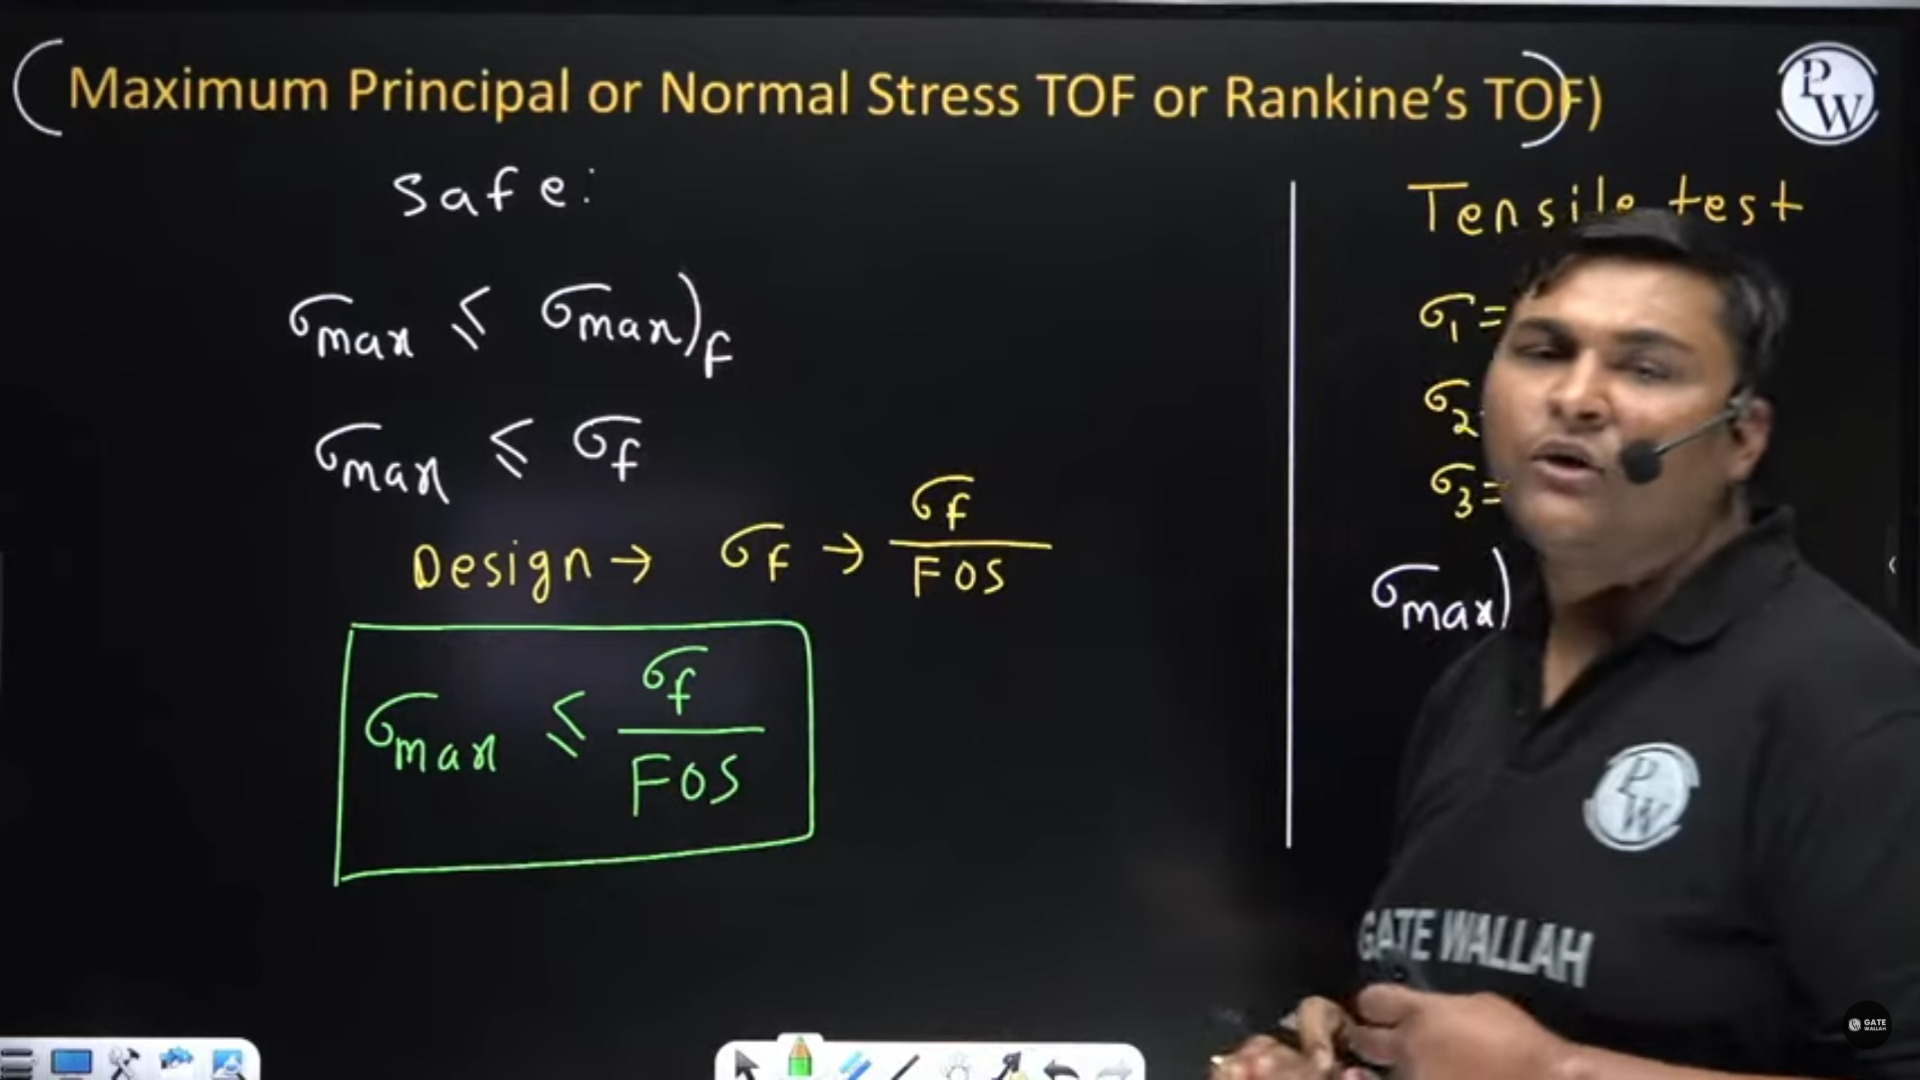 (Maximum Principal or Normal Stress TOF or Rankine's TOF)
PW
Safe:
σmax ≤ σmax)f
σmax ≤ σf
Design → σf → σf/FOS
σmax ≤ σf/FOS
Tensile test
σ1 =
σ2
σ3 =
σmax)
PW
GATE WALLAH
GATE WALLAH